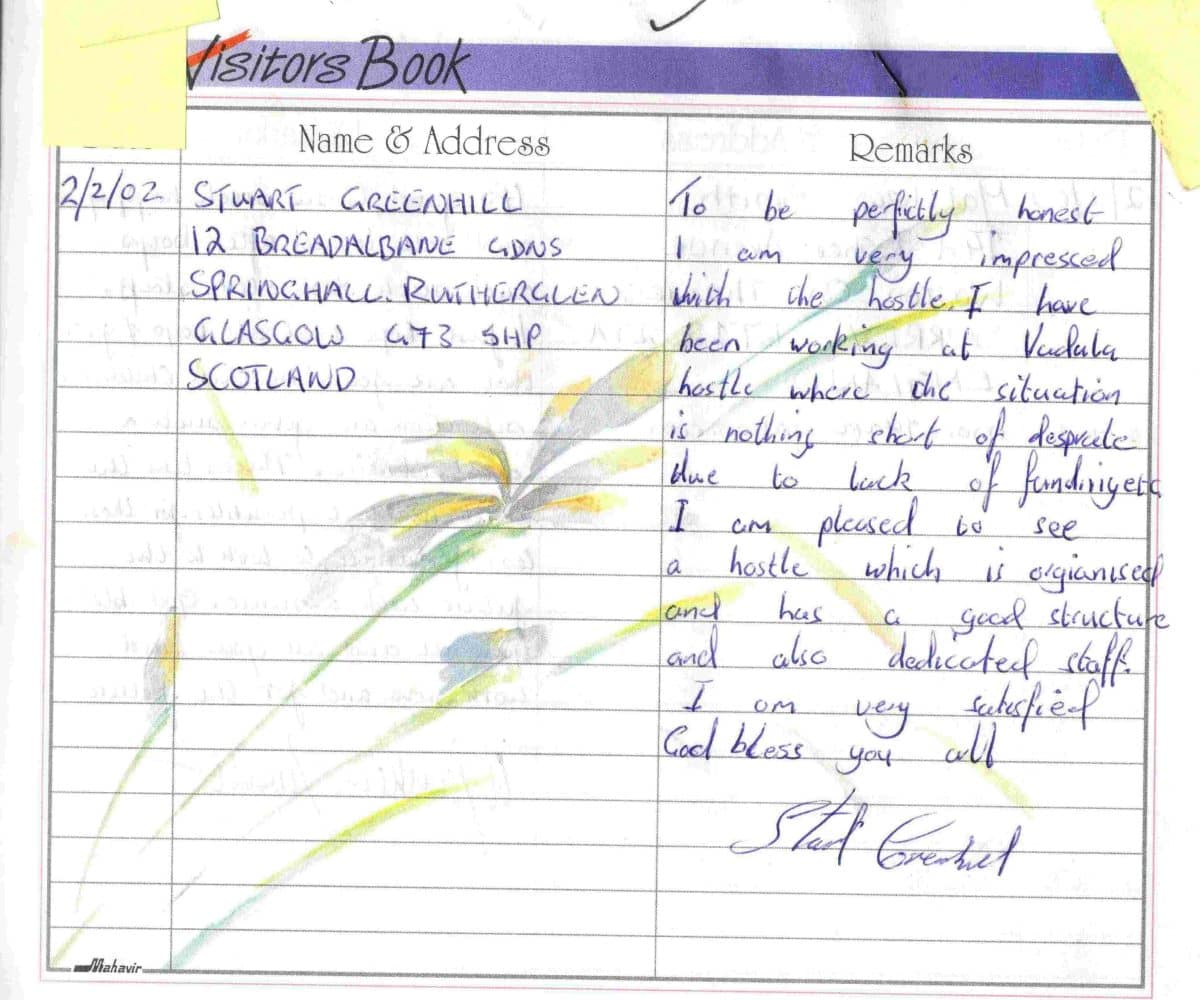 Visitors Book
Name & Address
Remarks
2/2/02 STUART GREENHILL
12 BREADALBANE GDNS
SPRINGHALL. RUTHERGLEN
GLASGOW G73 5HP
SCOTLAND
To be perfictly honest
I am very impressed
with the hostle. I have
been working at Vadala
hostle where the situation
is nothing short of desprate
due to lack of fundingetc
I am pleased to see
a hostle which is orgianised
and has a good structure
and also dedicated staff.
I am very satisfied
God bless you all
Stuart Greenhill
Mahavir